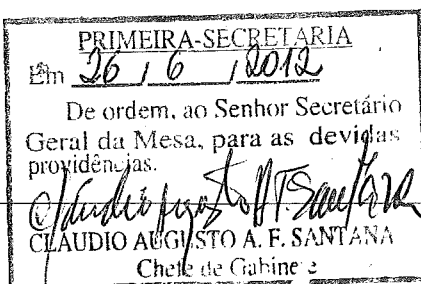 PRIMEIRA-SECRETARIA
Em 26 / 6 / 2012
De ordem, ao Senhor Secretário
Geral da Mesa, para as devidas
providências.
CLAUDIO AUGUSTO A. F. SANTANA
Chefe de Gabinete